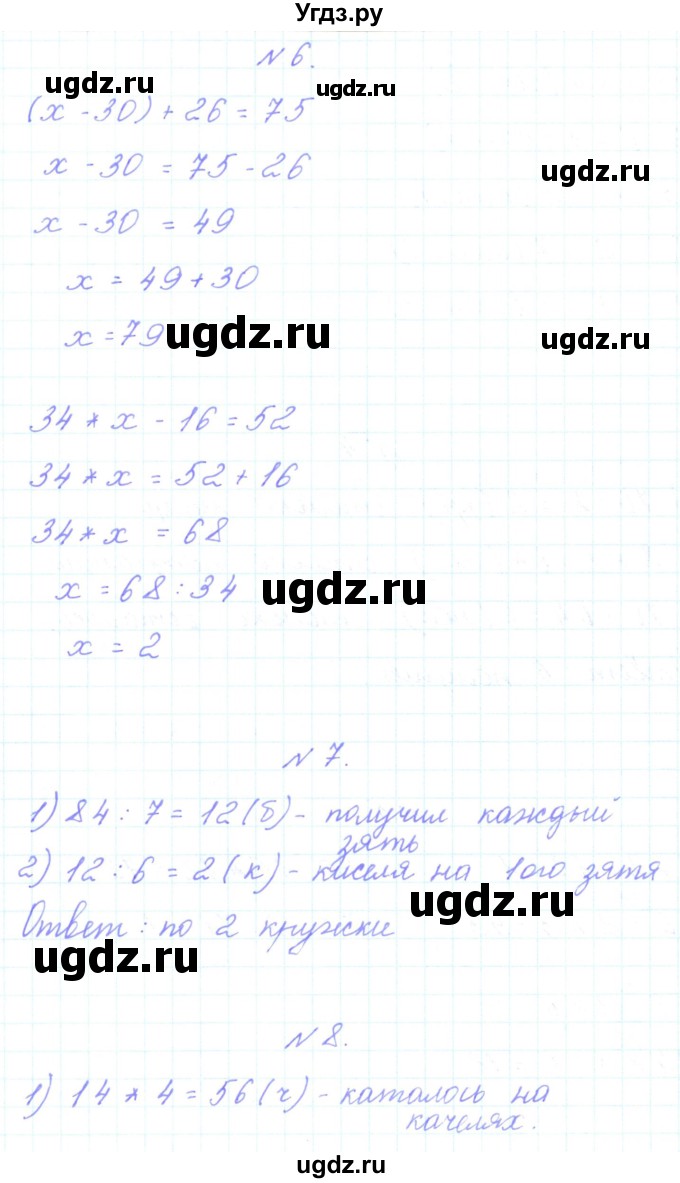 Угдз.ру
N 6.
ugdz.ru
ugdz.ru
(x - 30) + 26 = 75
x - 30 = 75 - 26
ugdz.ru
x - 30 = 49
x = 49 + 30
x = 79
ugdz.ru
ugdz.ru
34 * x - 16 = 52
34 * x = 52 + 16
34 * x = 68
x = 68 : 34
ugdz.ru
x = 2
N 7.
1) 84 : 7 = 12 (б) - получил каждый
зять
2) 12 : 6 = 2 (к) - киселя на 1ого зятя
ugdz.ru
Ответ: по 2 кружки
ugdz.ru
N 8.
1) 14 * 4 = 56 (ч) - каталось на
качелях.
ugdz.ru